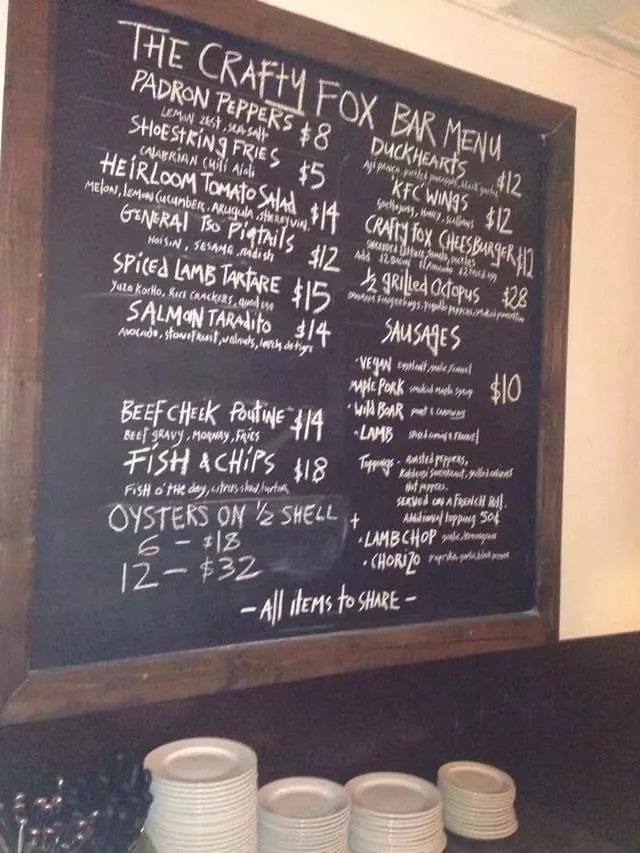 THE CRAFTY FOX BAR MENU
PADRON PEPPERS $8
LEMON ZEST, SEA SALT
SHOESTRING FRIES $5
CALABRIAN CHILI AIOLI
HEIRLOOM TOMATO SALAD $14
MELON, LEMON CUCUMBERS, ARUGULA, SHERRY VIN.
GENERAL TSO PIGTAILS $12
HOISIN, SESAME, RADISH
SPICED LAMB TARTARE $15
YUZU KOCHO, RICE CRACKERS, QUAIL EGG
SALMON TARADITO $14
AVOCADO, STONEFRUIT, WALNUTS, LECHE DE TIGRE
BEEF CHEEK POUTINE $14
BEEF GRAVY, MORNAY, FRIES
FISH & CHIPS $18
FISH O' THE DAY, CITRUS SLAW, TARTAR
OYSTERS ON ½ SHELL
6 - $18
12 - $32
DUCKHEARTS $12
AJI PANCA
KFC WINGS $12
GOCHUJANG, HONEY, SCALLIONS
CRAFTY FOX CHEESBURGER $12
LETTUCE, TOMATO, PICKLES
ADD $2 BACON $2 AVOCADO $2 FRIED EGG
½ GRILLED OCTOPUS $28
FINGERLINGS, PIQUILLO PEPPERS, SMOKED
SAUSAGES
· VEGAN EGGPLANT, GARLIC, FENNEL
MAPLE PORK SMOKED MAPLE SYRUP $10
· WILD BOAR PORT & CARAWAY
· LAMB
TOPPINGS - ROASTED PEPPERS,
SAUERKRAUT, GRILLED ONIONS
HOT PEPPERS.
SERVED ON A FRENCH ROLL.
ADDITIONAL TOPPING 50¢
+
· LAMB CHOP GARLIC, LEMONGRASS
· CHORIZO PAPRIKA, GARLIC, BLACK PEPPER
- ALL ITEMS TO SHARE -